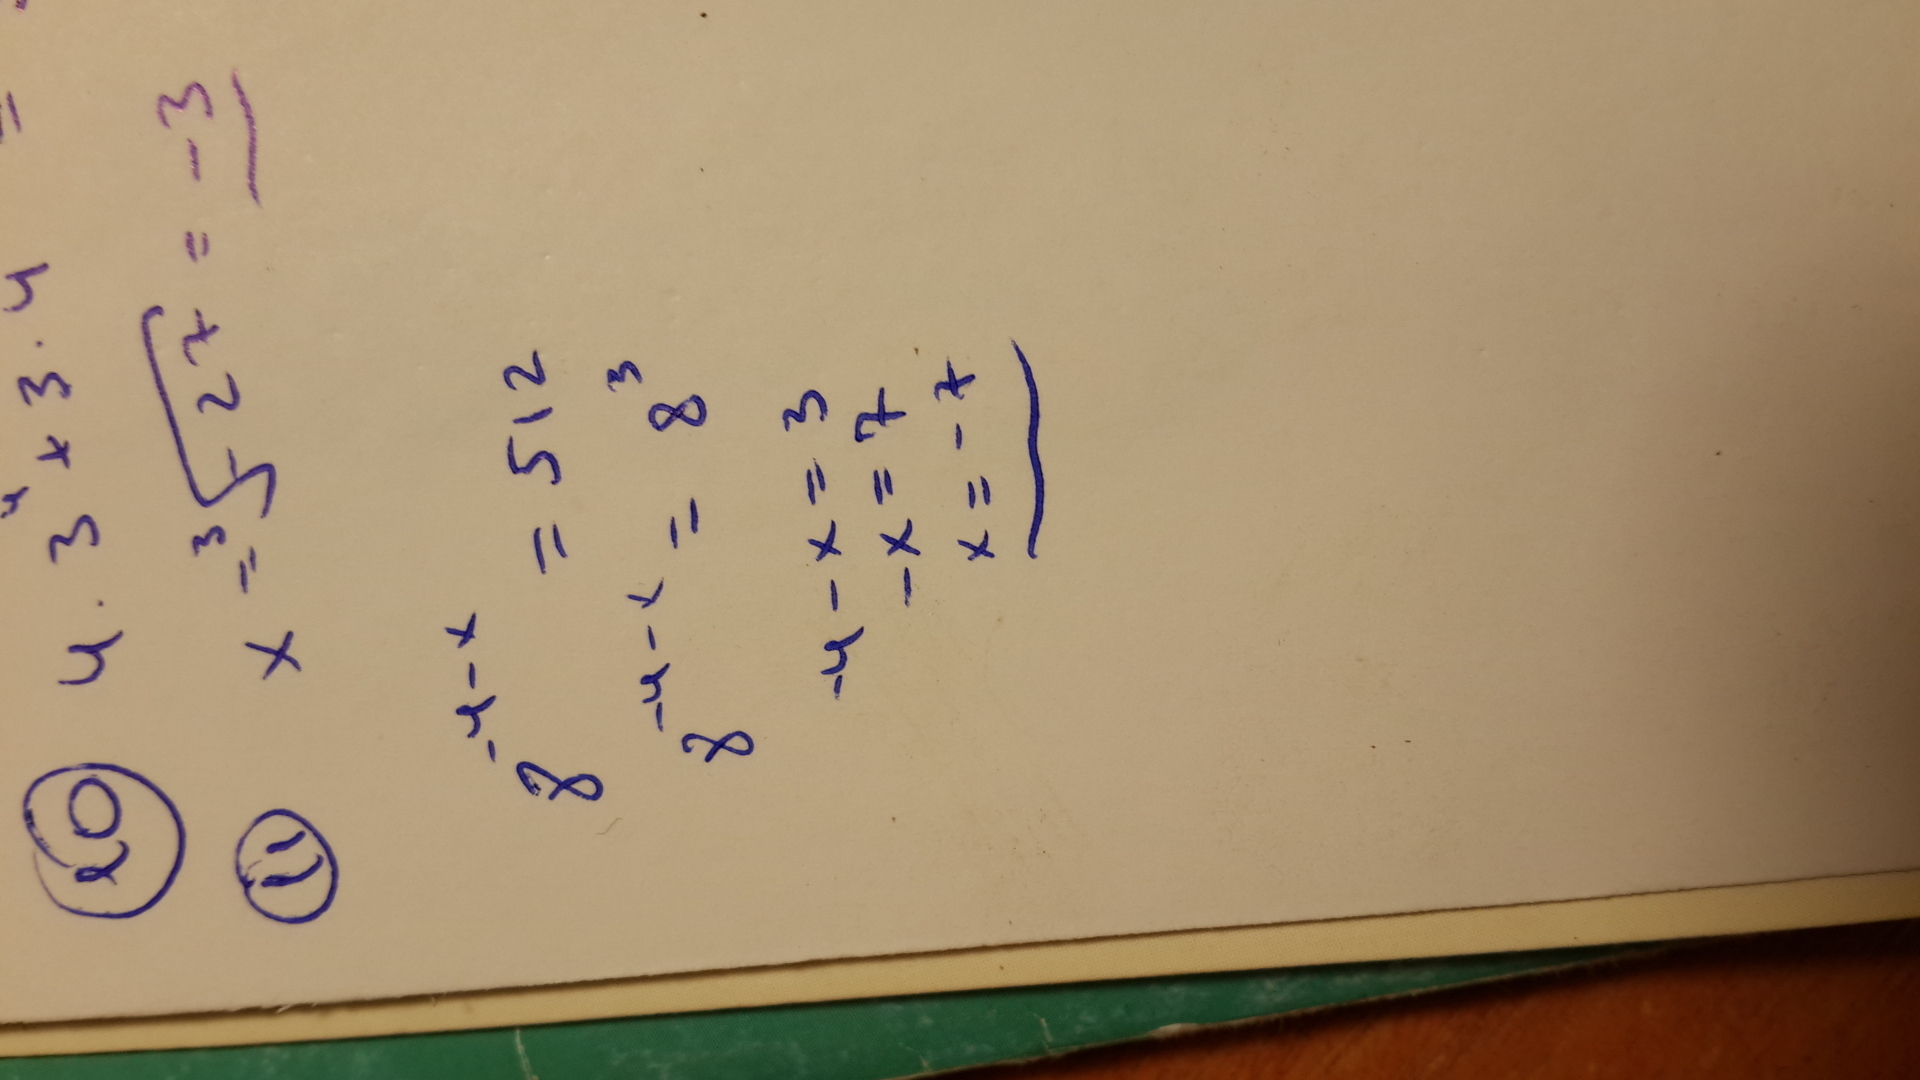 =
⑳ 4 · 3⁴ + 3 · 4
⑪ x = ³√-27 = -3
8^(-4-x) = 512
8^(-4-x) = 8³
-4 - x = 3
-x = 7
x = -7